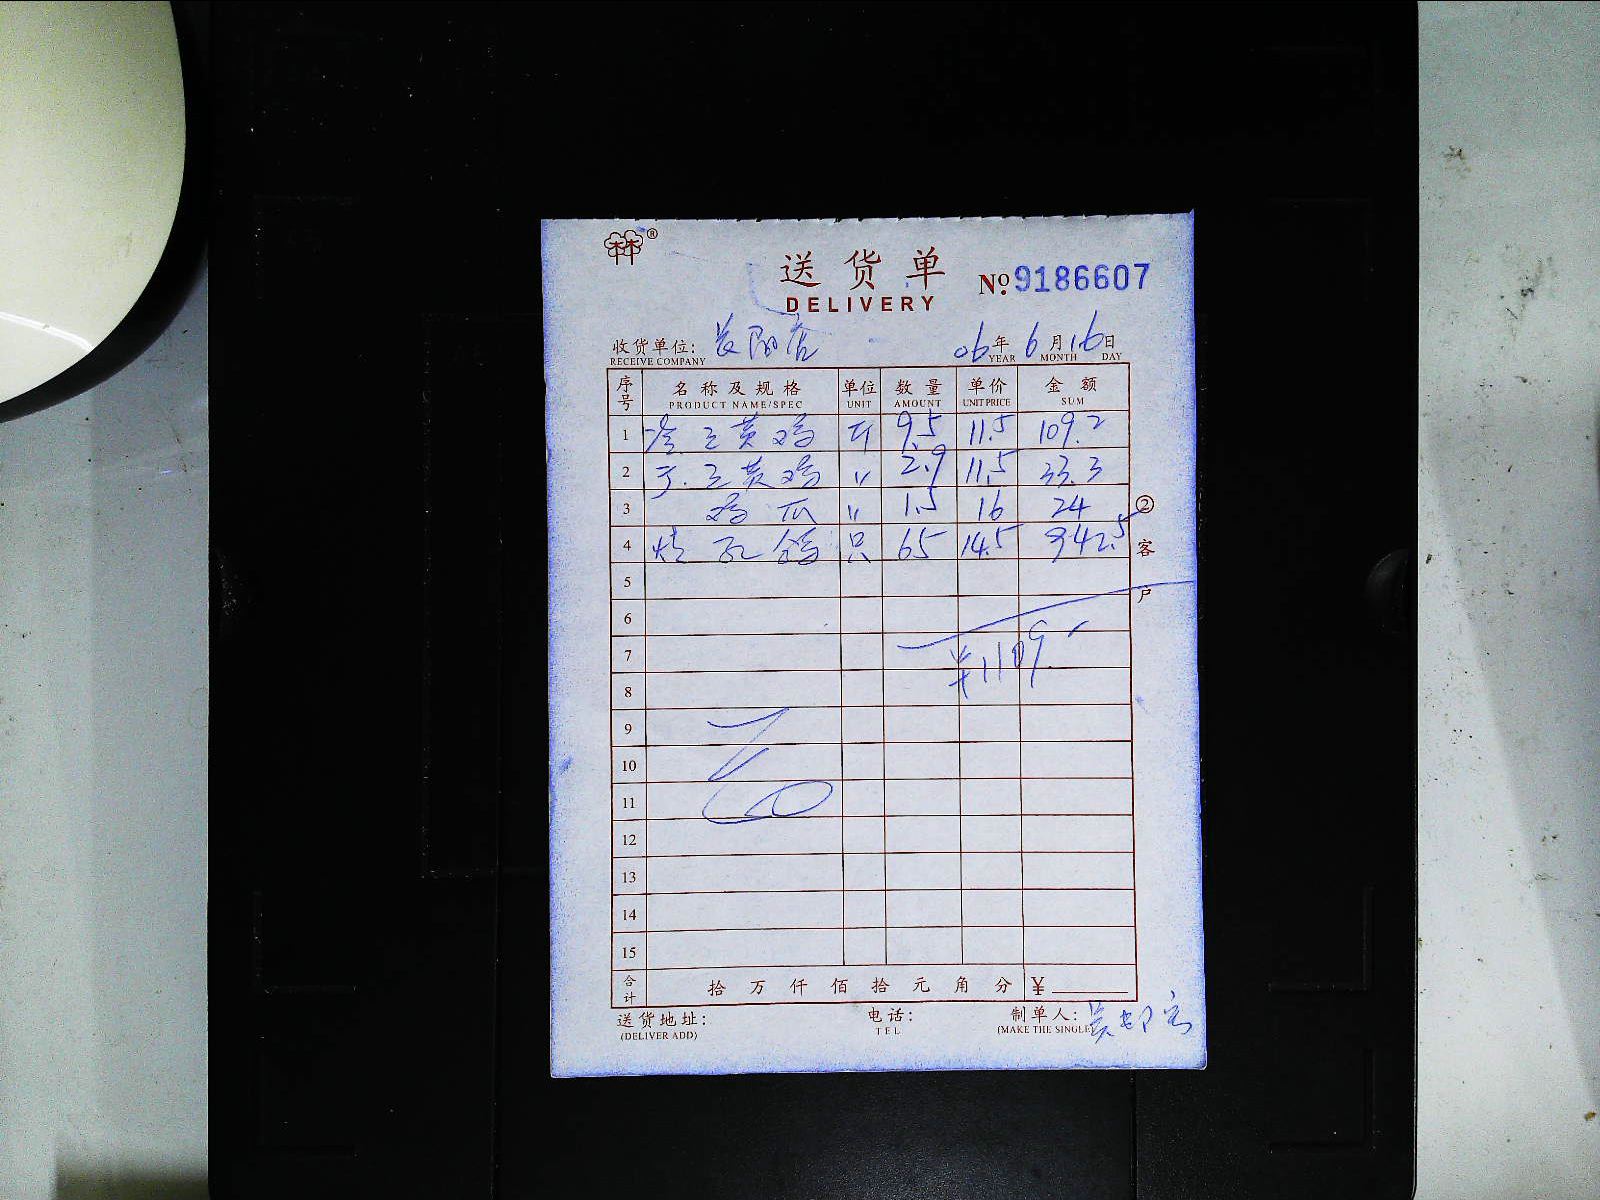 林®
送货单
DELIVERY
No. 9186607
收货单位: 店 06年6月16日
RECEIVE COMPANY YEAR MONTH DAY
序号 名称及规格 单位 数量 单价 金额
PRODUCT NAME/SPEC UNIT AMOUNT UNIT PRICE SUM
1 三黄鸡 斤 9.5 11.5 109.2
2 三黄鸡 〃 2.9 11.5 33.3
3 鸡爪 〃 1.5 16 24
4 烧乳鸽 只 65 14.5 942.5
5
6
7 ¥1109.
8
9
10
11
12
13
14
15
合计 拾 万 仟 佰 拾 元 角 分 ¥
送货地址: 电话: 制单人:
(DELIVER ADD) TEL (MAKE THE SINGLE
②客户